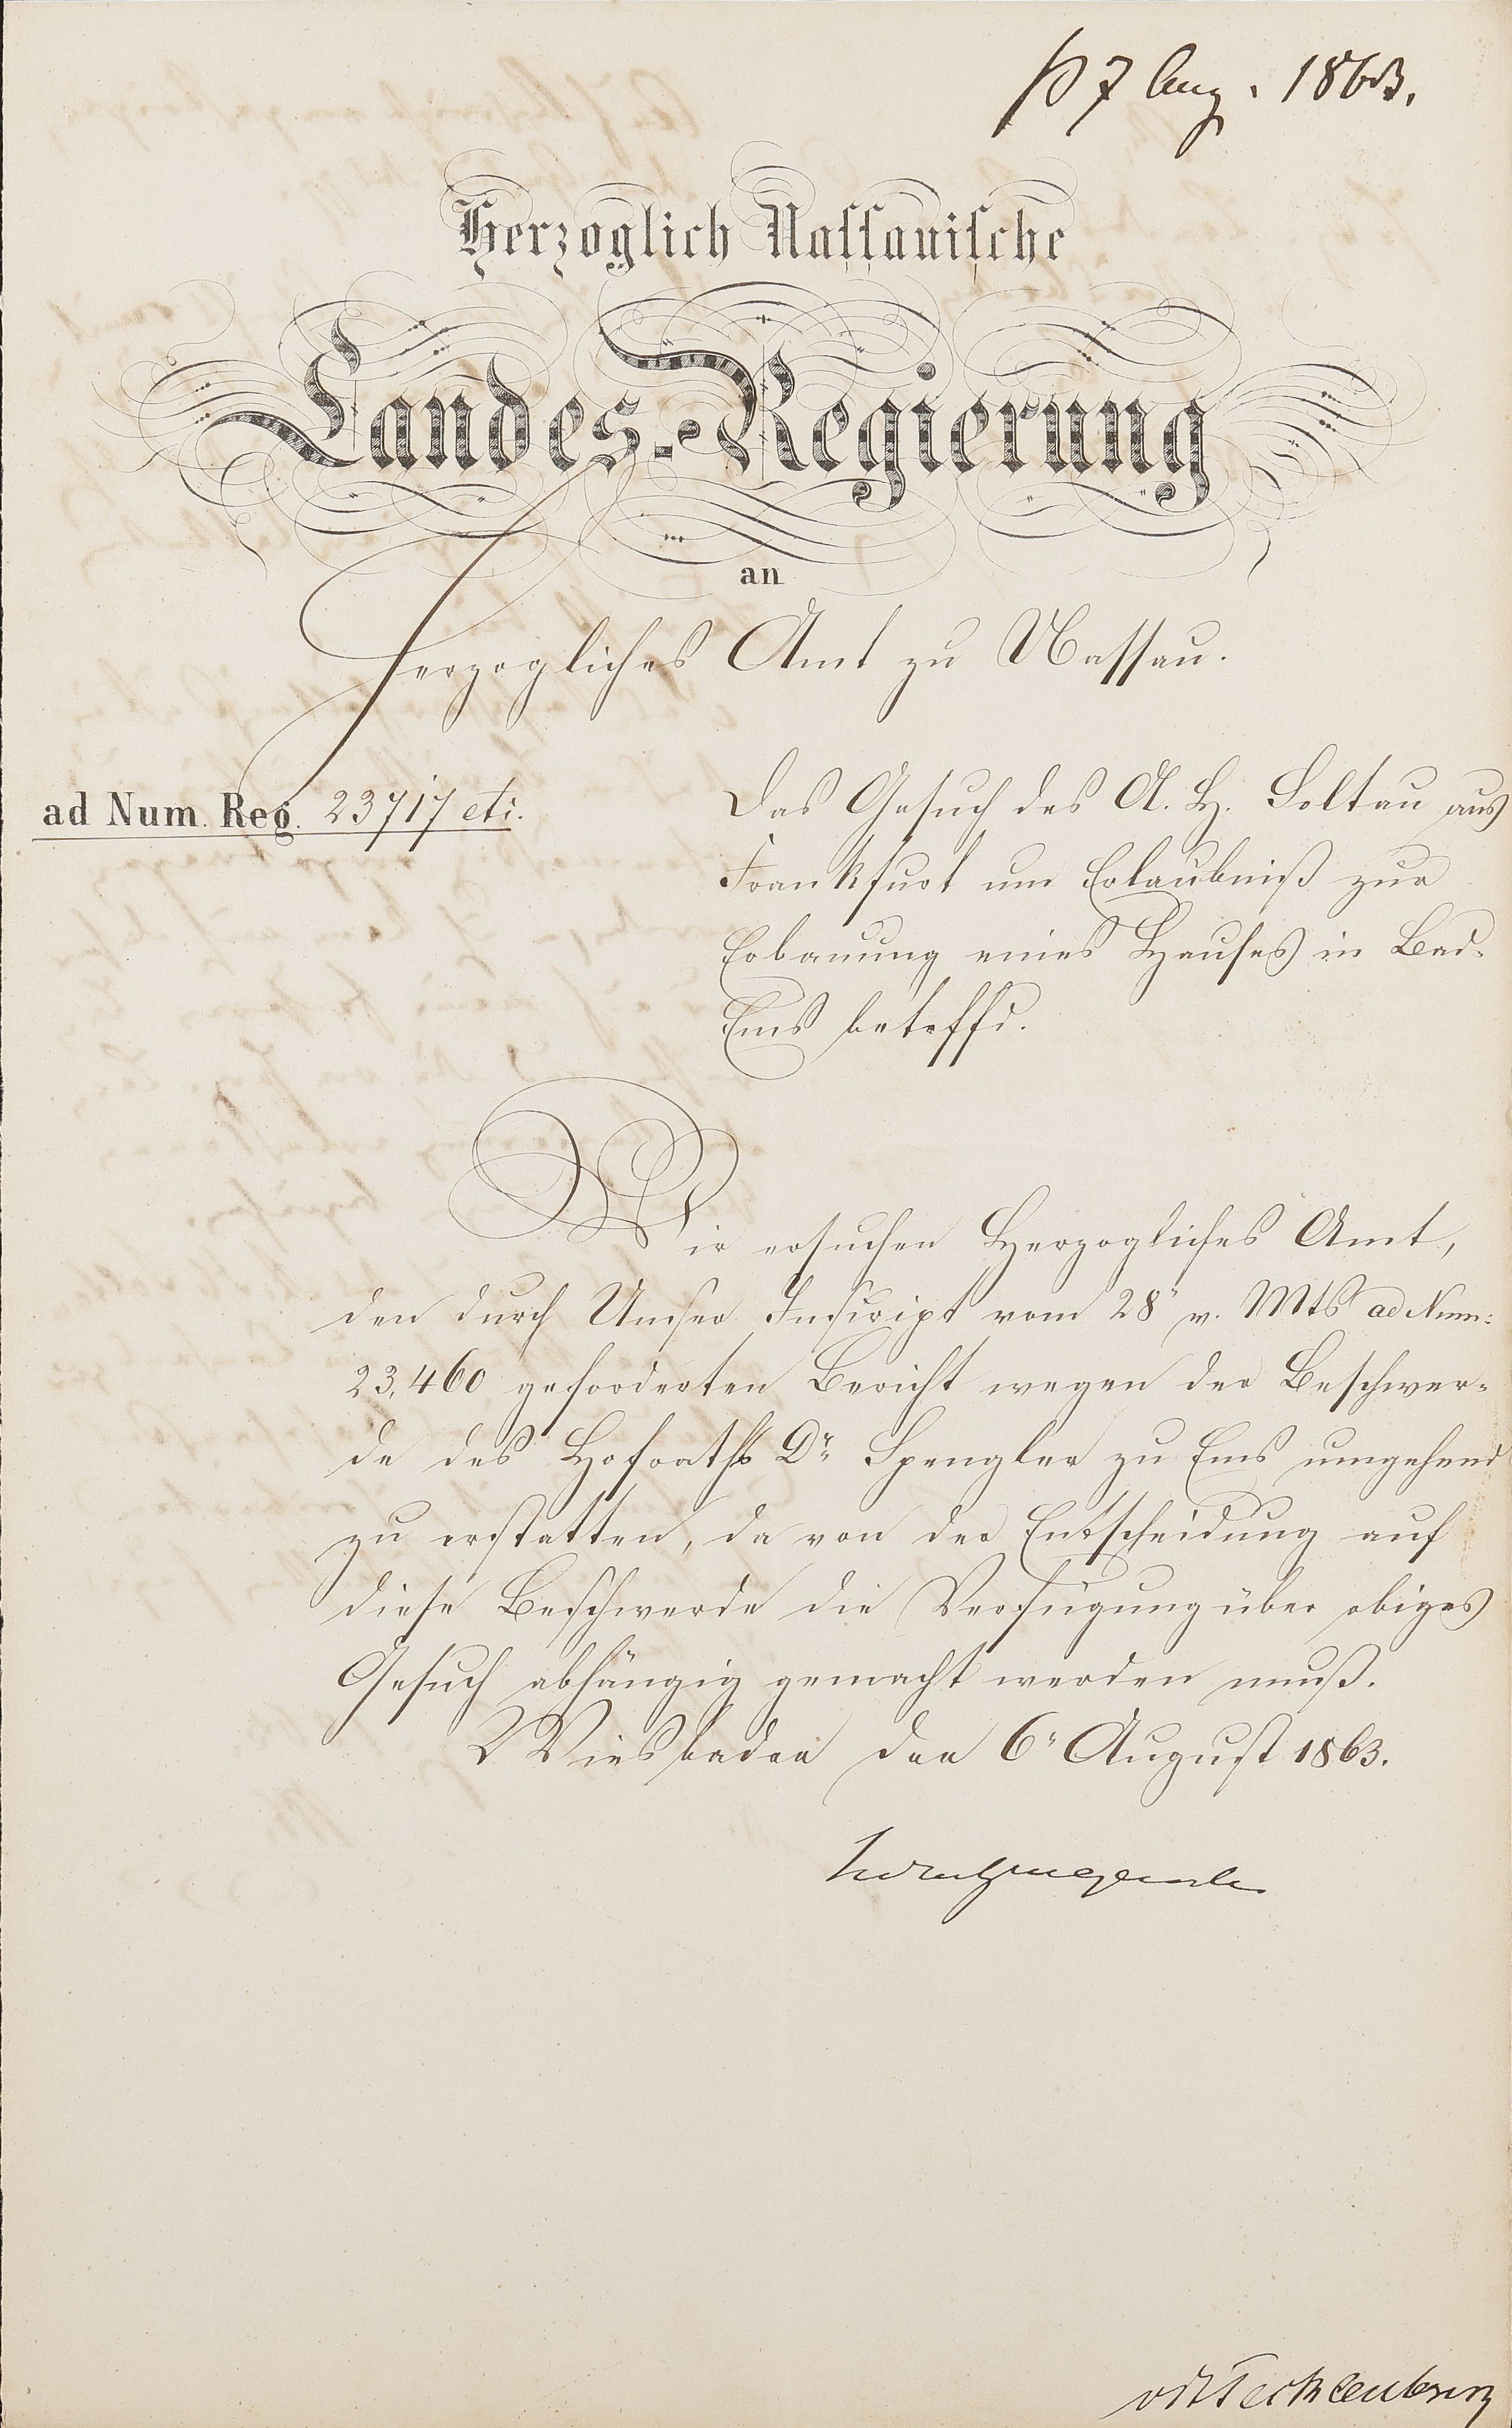 7 Aug. 1863.
Herzoglich Nassauische
Landes-Regierung
an
Herzogliches Amt zu Nassau.
ad Num. Reg. 23717 etc.
Das Gesuch des A. H. Soltau aus
Frankfurt um Erlaubniß zur
Erbauung eines Hauses in Bad-
Ems betrffd.
Wir ersuchen Herzogliches Amt,
den durch Unser Inscript vom 28ⁿ v. Mts ad Num:
23,460 geforderten Bericht wegen der Beschwer-
de des Hofraths Dr. Spengler zu Ems umgehend
zu erstatten, da von der Entscheidung auf
diese Beschwerde die Verfügung über obiges
Gesuch abhängig gemacht werden muß.
Wiesbaden den 6ⁿ August 1863.
vdt Tecklenburg